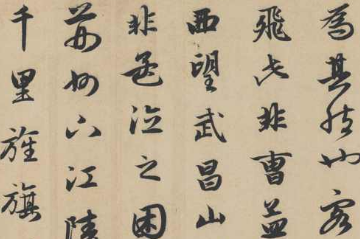 為其然也客
飛此非曹孟
西望武昌山
非孟德之困
荊州下江陵
千里旌旗